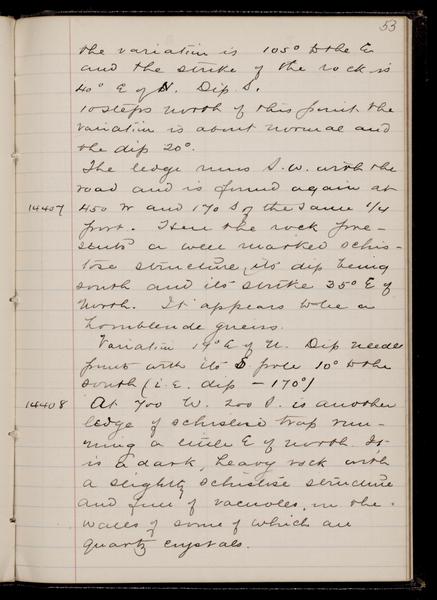 53
the variation is 105° to the E.
and the strike of the rock is
40° E of N. Dip S.
10 steps north of this point the
variation is about normal and
the dip 20°.
The ledge runs S.W. with the
road and is found again at
14407 450 W and 170 S of the same 1/4
post. Here the rock pre-
sents a well marked schis-
tose structure, its dip being
south and its strike 35° E of
North. It appears to be a
hornblende gneiss.
Variation 19° E of N. Dip needle
point with its S pole 10° to the
south (i.e. dip - 170°)
14408 At 700 W. 200 S. is another
ledge of schistose trap run-
ning a little E of north. It
is a dark, heavy rock with
a slightly schistose structure
and full of vacuoles, in the
walls of some of which are
quartz crystals.